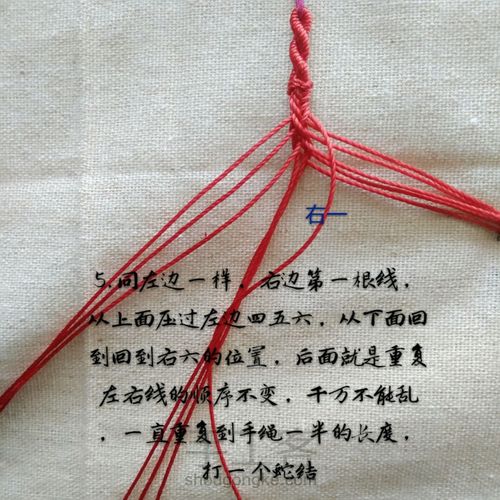 右一
5.同左边一样，右边第一根线，
从上面压过左边四五六，从下面回
到回到右六的位置，后面就是重复
左右线的顺序不变，千万不能乱
，一直重复到手绳一半的长度，
打一个蛇结
shougongke.com